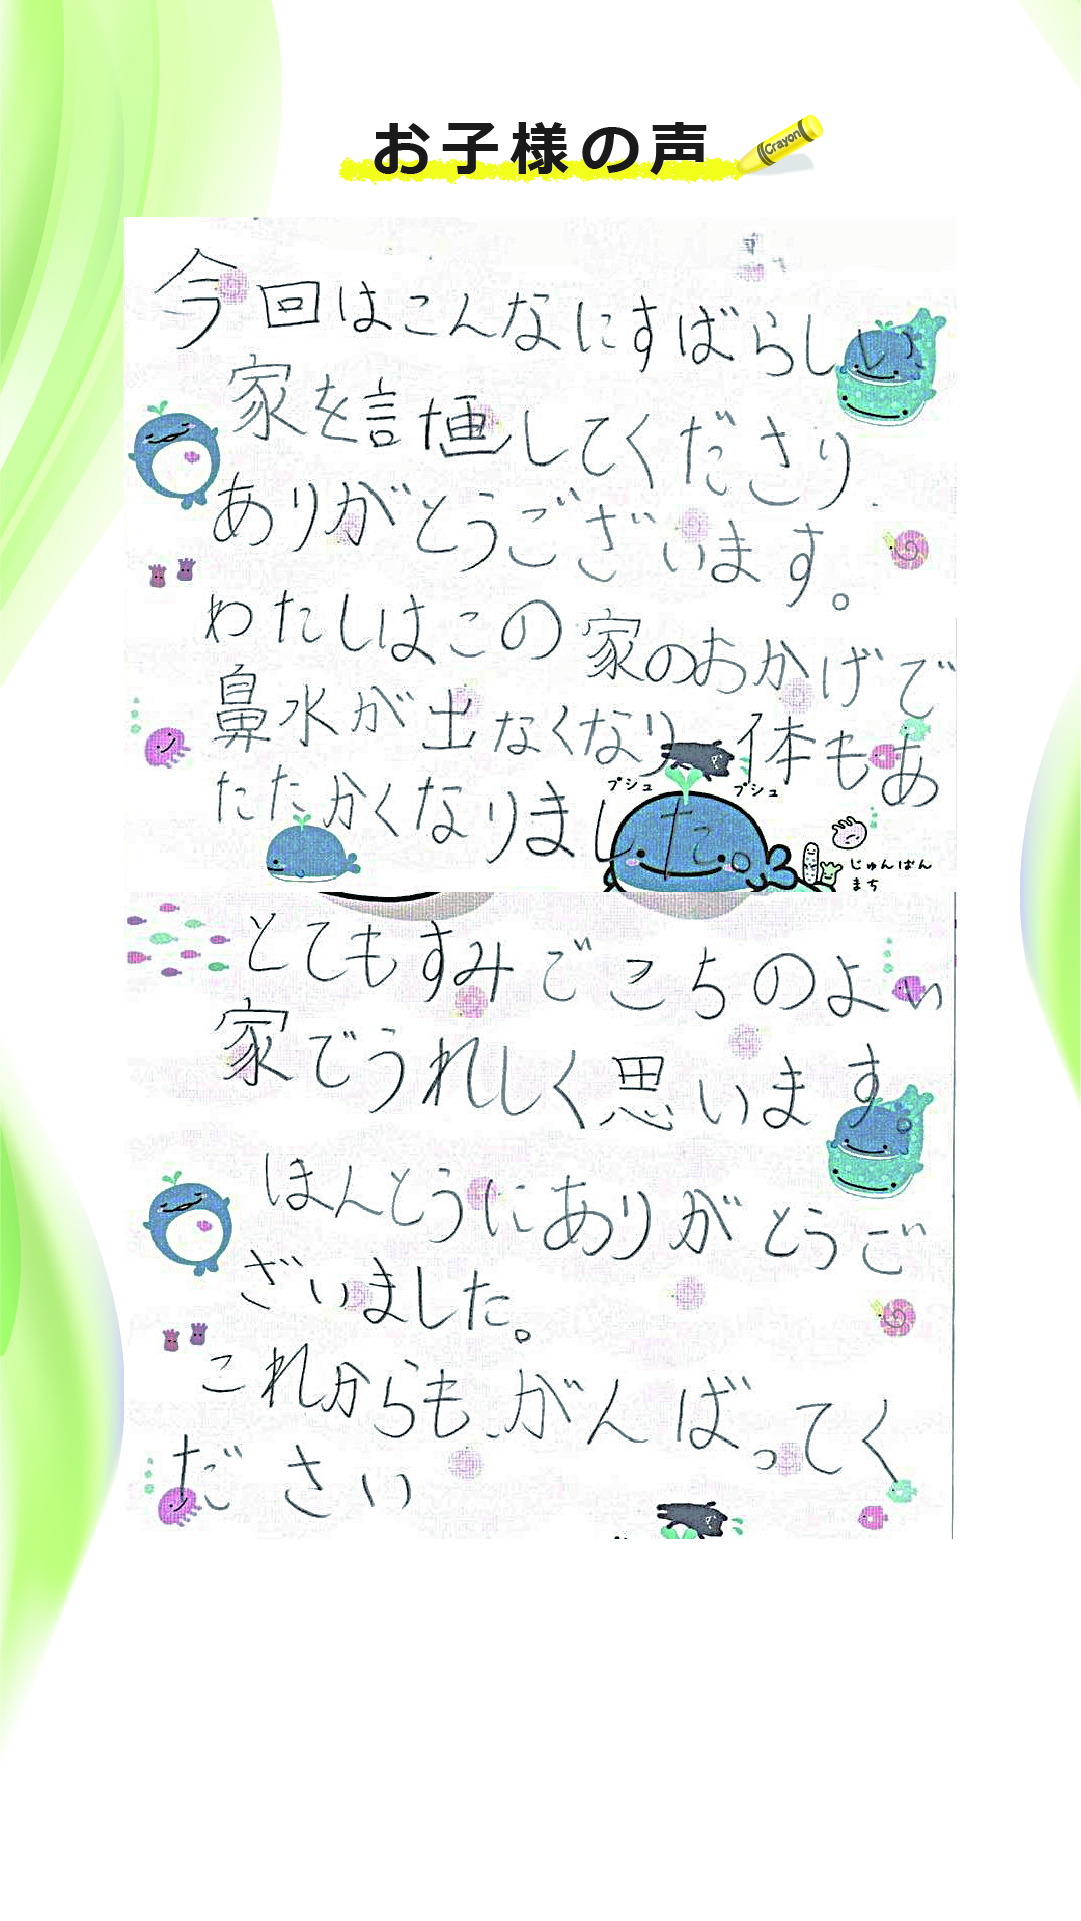 お子様の声
Crayon
今回はこんなにすばらしい
家を計画してくださり
ありがとうございます。
わたしはこの家のおかげで
鼻水が出なくなり、体もあ
たたかくなりました。
プシュ
プシュ
じゅんばん
まち
とてもすみごこちのよい
家でうれしく思います。
ほんとうにありがとうご
ざいました。
これからも、がんばってく
ださい